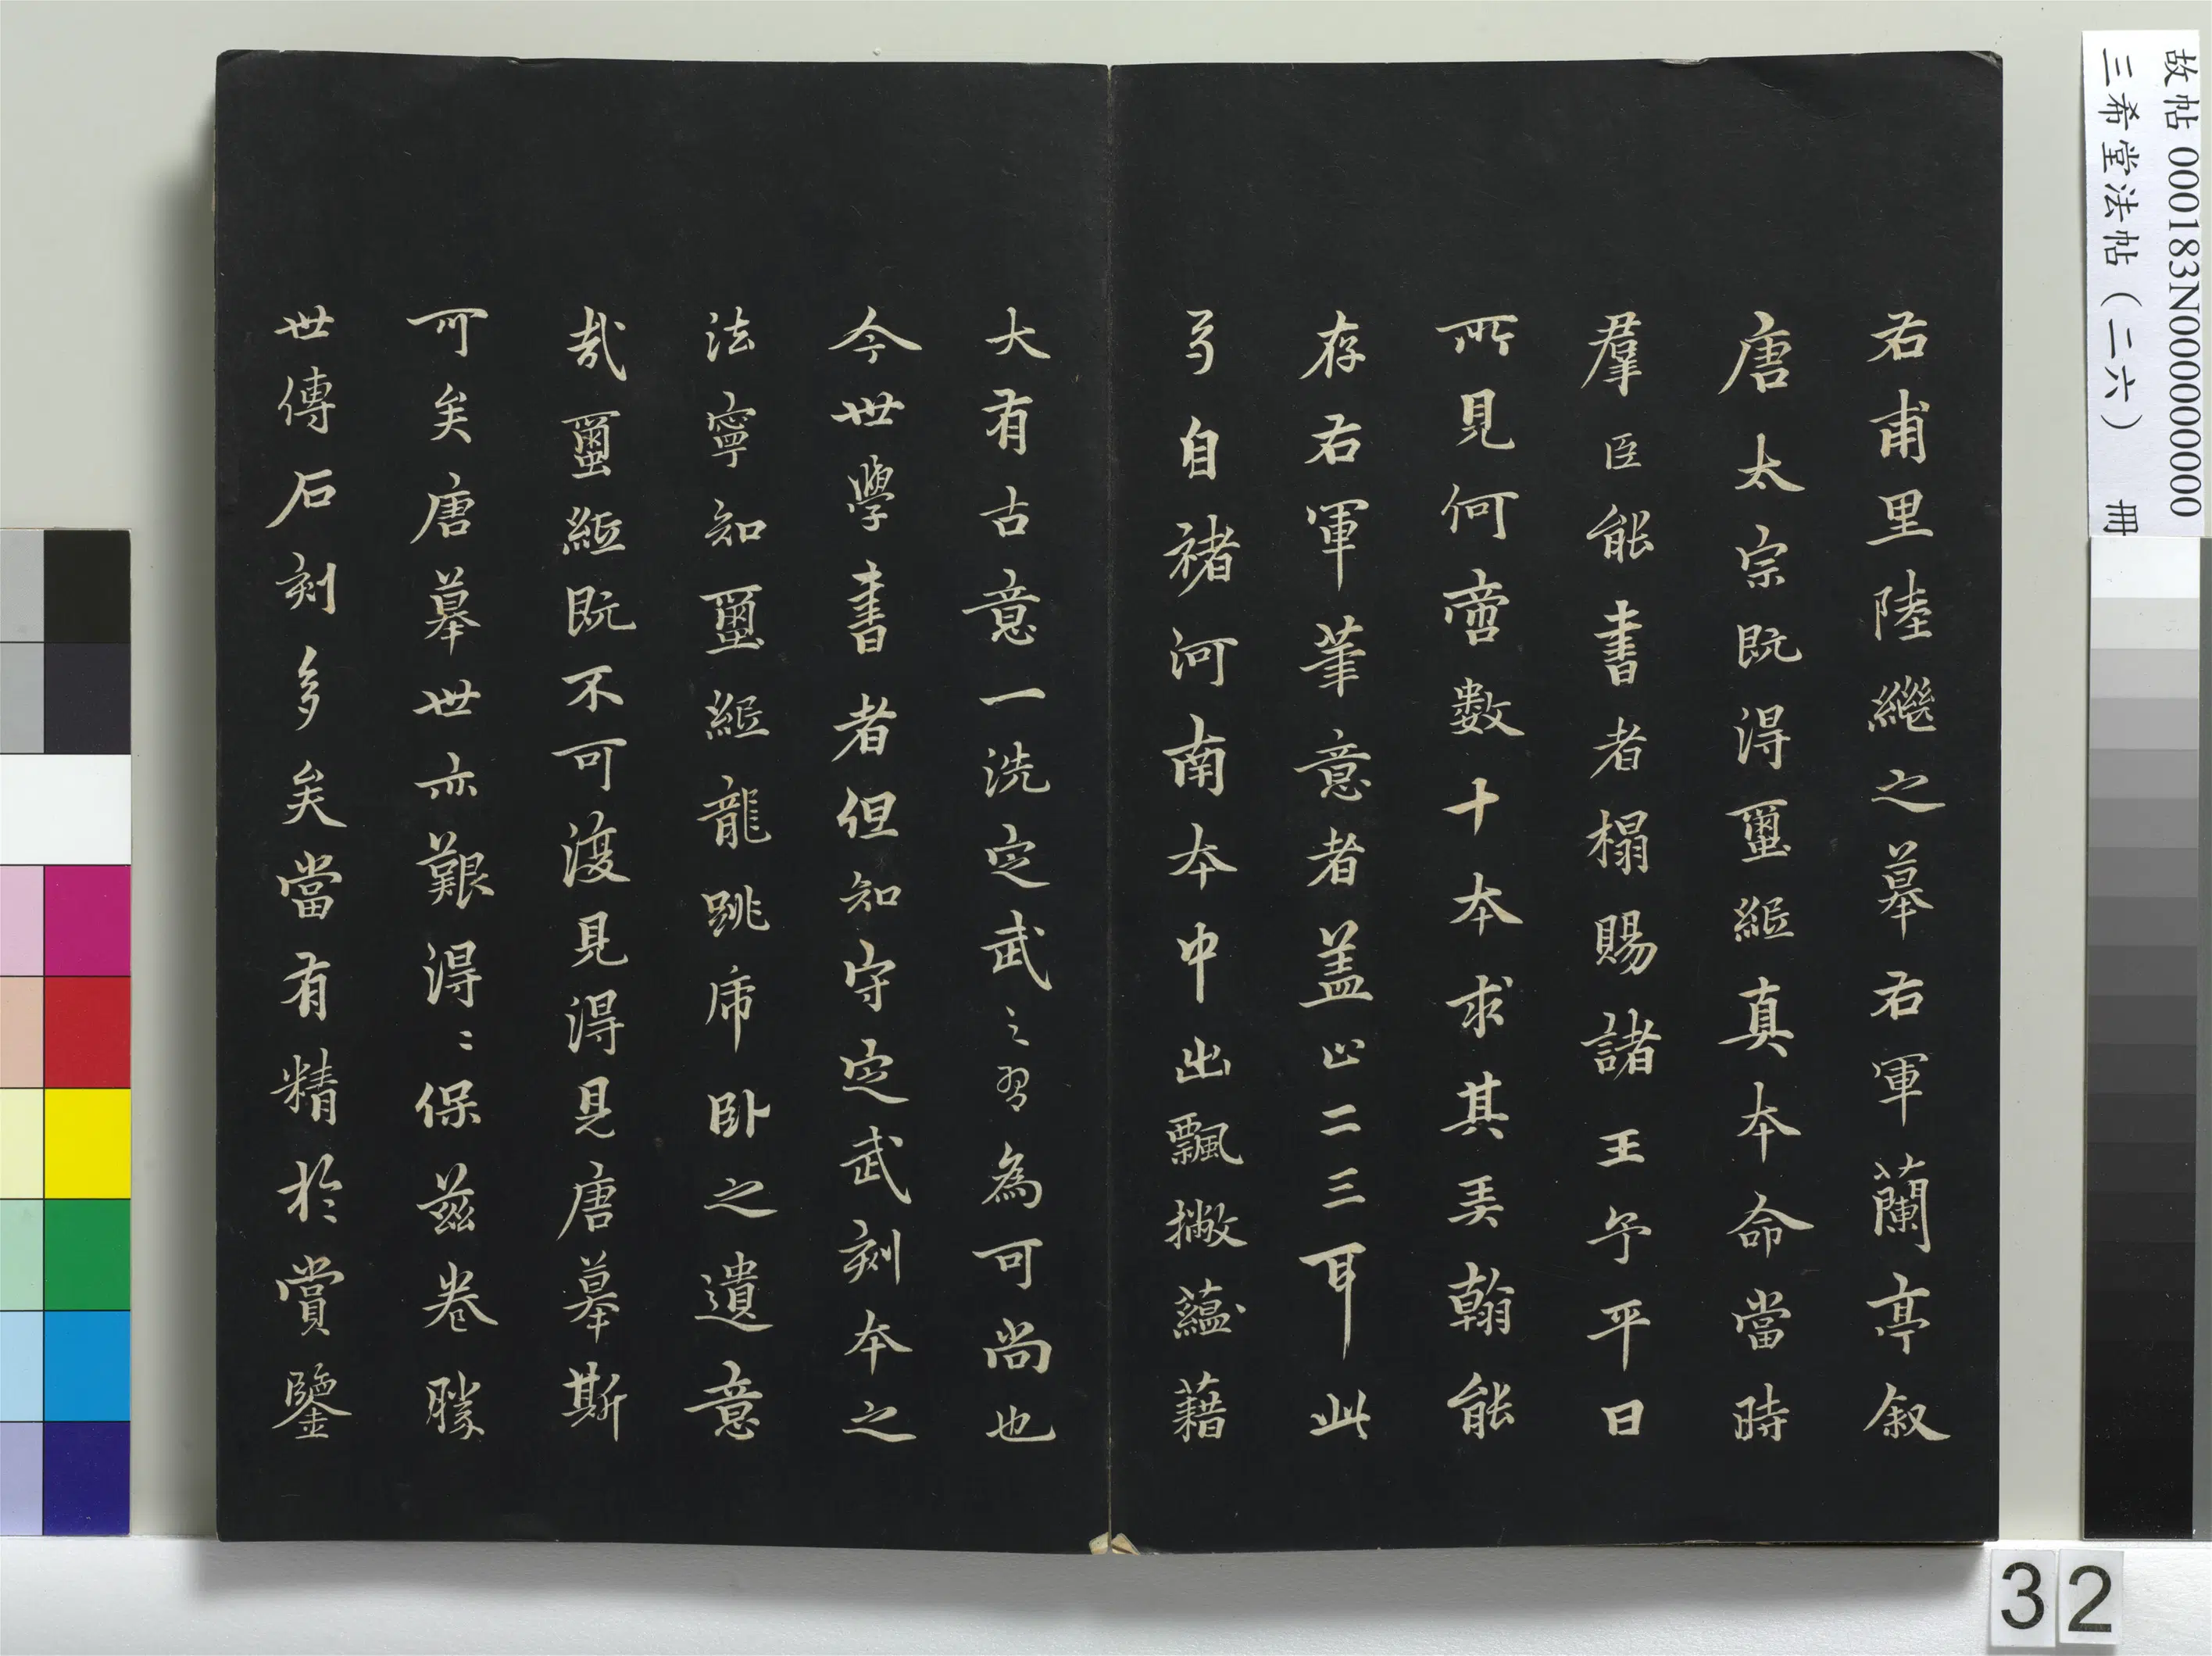 右甫里陸繼之摹右軍蘭亭叙
唐太宗既得璽紙真本命當時
羣臣能書者搨賜諸王予平日
所見何啻數十本求其弄翰能
存右軍筆意者盖止二三耳此
号自褚河南本中出飄撇蘊藉
大有古意一洗定武之習為可尚也
今世學書者但知守定武刻本之
法寧知璽紙龍跳虎卧之遺意
哉璽紙既不可復見得見唐摹斯
可矣唐摹世亦艱得〻保兹卷勝
世傳石刻多矣當有精於賞鑒
故帖 000183N000000000
三希堂法帖（二六） 冊
32